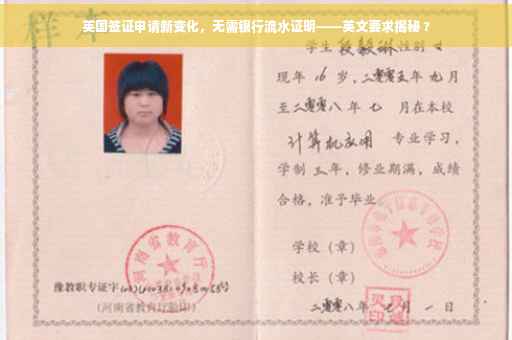 英国签证申请新变化，无需银行流水证明——英文要求揭秘？
样本
学生 段毅琳 性别 女
现年 16 岁，二零零五年 九月
至二零零八年 七 月在本校
计算机应用 专业学习，
学制 三 年，修业期满，成绩
合格，准予毕业。
学校（章）
校长（章）
二零零八年 七 月 一 日
河南省教育厅
豫教职专证字
（河南省教育厅验印）